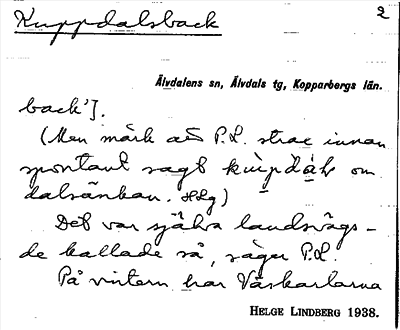 Kuppdalsback
2
Älvdalens sn, Älvdals tg, Kopparbergs län.
back'].
(Men märk att P.L. strax innan
spontant sagt om
dalsänkan. HLg)
Det var själva landsvägs-
de kallade så, säger P.L.
På vintern har Väskarlarna
HELGE LINDBERG 1938.